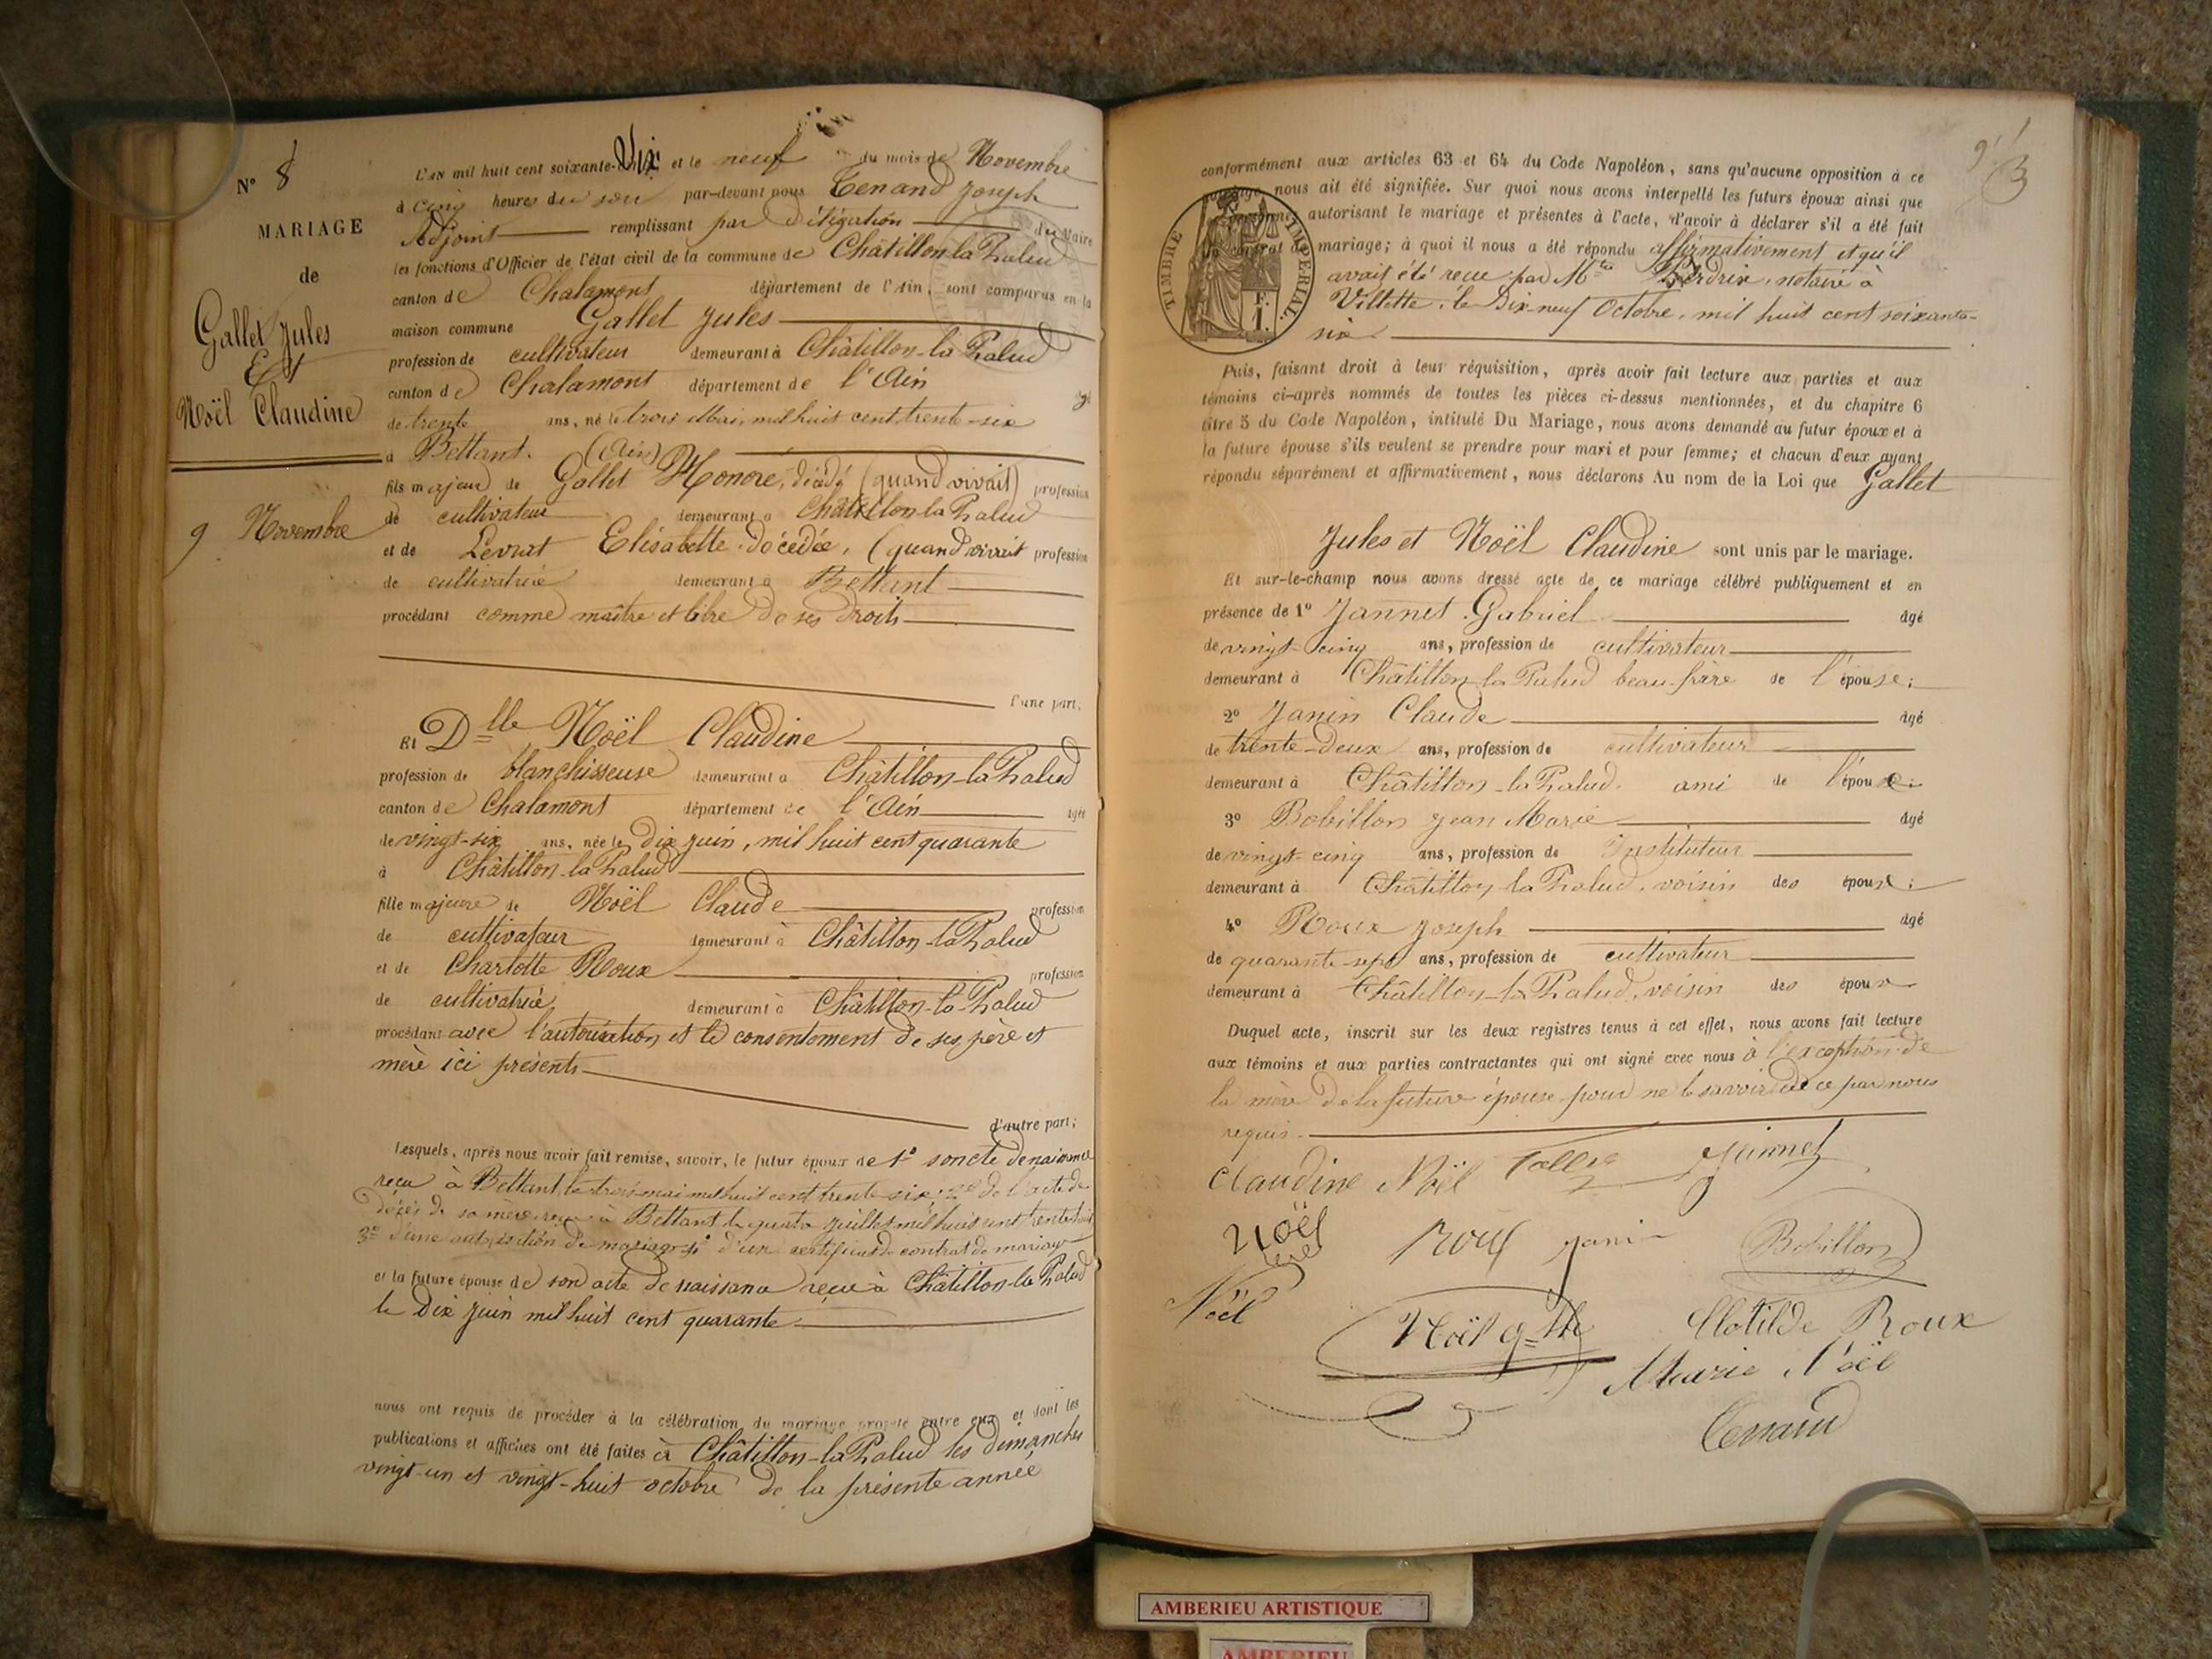 N° 8
MARIAGE
de
Gallet Jules
Et
Noël Claudine
9 Novembre
L'AN mil huit cent soixante-Six et le neuf du mois de Novembre
à cinq heures du soir par-devant nous Tenand Joseph
Adjoint remplissant par délégation du Maire
les fonctions d'Officier de l'état civil de la commune de Châtillon-la-Palud
canton de Chalamont département de l'Ain, sont comparus en la
maison commune Gallet Jules
profession de cultivateur demeurant à Châtillon-la-Palud
canton de Chalamont département de l'Ain âgé
de trente ans, né le trois Mai, mil huit cent trente-six
à Bettant. (Ain)
fils majeur de Gallet Honoré, décédé (quand vivait) profession
de cultivateur demeurant à Châtillon-la-Palud
et de Levrat Elisabette décédée, (quand vivait profession
de cultivatrice demeurant à Bettant
procédant comme maître et libre de ses droits
d'une part;
Et Dlle Noël Claudine
profession de blanchisseuse demeurant à Châtillon-la-Palud
canton de Chalamont département de l'Ain âgée
de vingt-six ans, née le dix juin, mil huit cent quarante
à Châtillon-la-Palud
fille majeure de Noël Claude profession
de cultivateur demeurant à Châtillon-la-Palud
et de Charlotte Roux profession
de cultivatrice demeurant à Châtillon-la-Palud
procédant avec l'autorisation et le consentement de ses père et
mère ici présents
d'autre part;
Lesquels, après nous avoir fait remise, savoir, le futur époux de 1° son acte de naissance
reçu à Bettant le trois mai mil huit cent trente six; 2° de l'acte de
décès de sa mère reçu à Bettant le quatre juillet mil huit cent trente huit
3° d'une autorisation de mariage 4° d'un certificat de contrat de mariage
et la future épouse de son acte de naissance reçu à Châtillon-la-Palud
le Dix Juin mil huit cent quarante
nous ont requis de procéder à la célébration du mariage projeté entre eux et dont les
publications et affiches ont été faites à Châtillon-la-Palud les dimanches
vingt-un et vingt-huit octobre de la présente année
conformément aux articles 63 et 64 du Code Napoléon, sans qu'aucune opposition à ce
mariage nous ait été signifiée. Sur quoi nous avons interpellé les futurs époux ainsi que
personnes autorisant le mariage et présentes à l'acte, d'avoir à déclarer s'il a été fait
un contrat de mariage; à quoi il nous a été répondu affirmativement et qu'il
avait été reçu par Mtre Perdrix, notaire à
Villette, le Dix-neuf Octobre, mil huit cent soixante-
six
TIMBRE IMPERIAL
1 F.
Puis, faisant droit à leur réquisition, après avoir fait lecture aux parties et aux
témoins ci-après nommés de toutes les pièces ci-dessus mentionnées, et du chapitre 6
titre 5 du Code Napoléon, intitulé Du Mariage, nous avons demandé au futur époux et à
la future épouse s'ils veulent se prendre pour mari et pour femme; et chacun d'eux ayant
répondu séparément et affirmativement, nous déclarons Au nom de la Loi que Gallet
Jules et Noël Claudine sont unis par le mariage.
Et sur-le-champ nous avons dressé acte de ce mariage célébré publiquement et en
présence de 1° Jannet Gabriel âgé
de vingt-cinq ans, profession de cultivateur
demeurant à Châtillon la Palud beau-frère de l'épouse;
2° Janin Claude âgé
de trente-deux ans, profession de cultivateur
demeurant à Châtillon-la-Palud. ami de l'épouse;
3° Bobillon Jean Marie âgé
de vingt-cinq ans, profession de Instituteur
demeurant à Châtillon la Palud, voisin des époux;
4° Roux Joseph âgé
de quarante-sept ans, profession de cultivateur
demeurant à Châtillon-la-Palud, voisin des époux
Duquel acte, inscrit sur les deux registres tenus à cet effet, nous avons fait lecture
aux témoins et aux parties contractantes qui ont signé avec nous à l'exception de
la mère de la future épouse pour ne le savoir de ce par nous
requis.
Claudine Noël Jannet
Noël Roux Janin Bobillon
Noël
Noël Clotilde Roux
Marie Noël
Tenand
AMBERIEU ARTISTIQUE
AMBERIEU